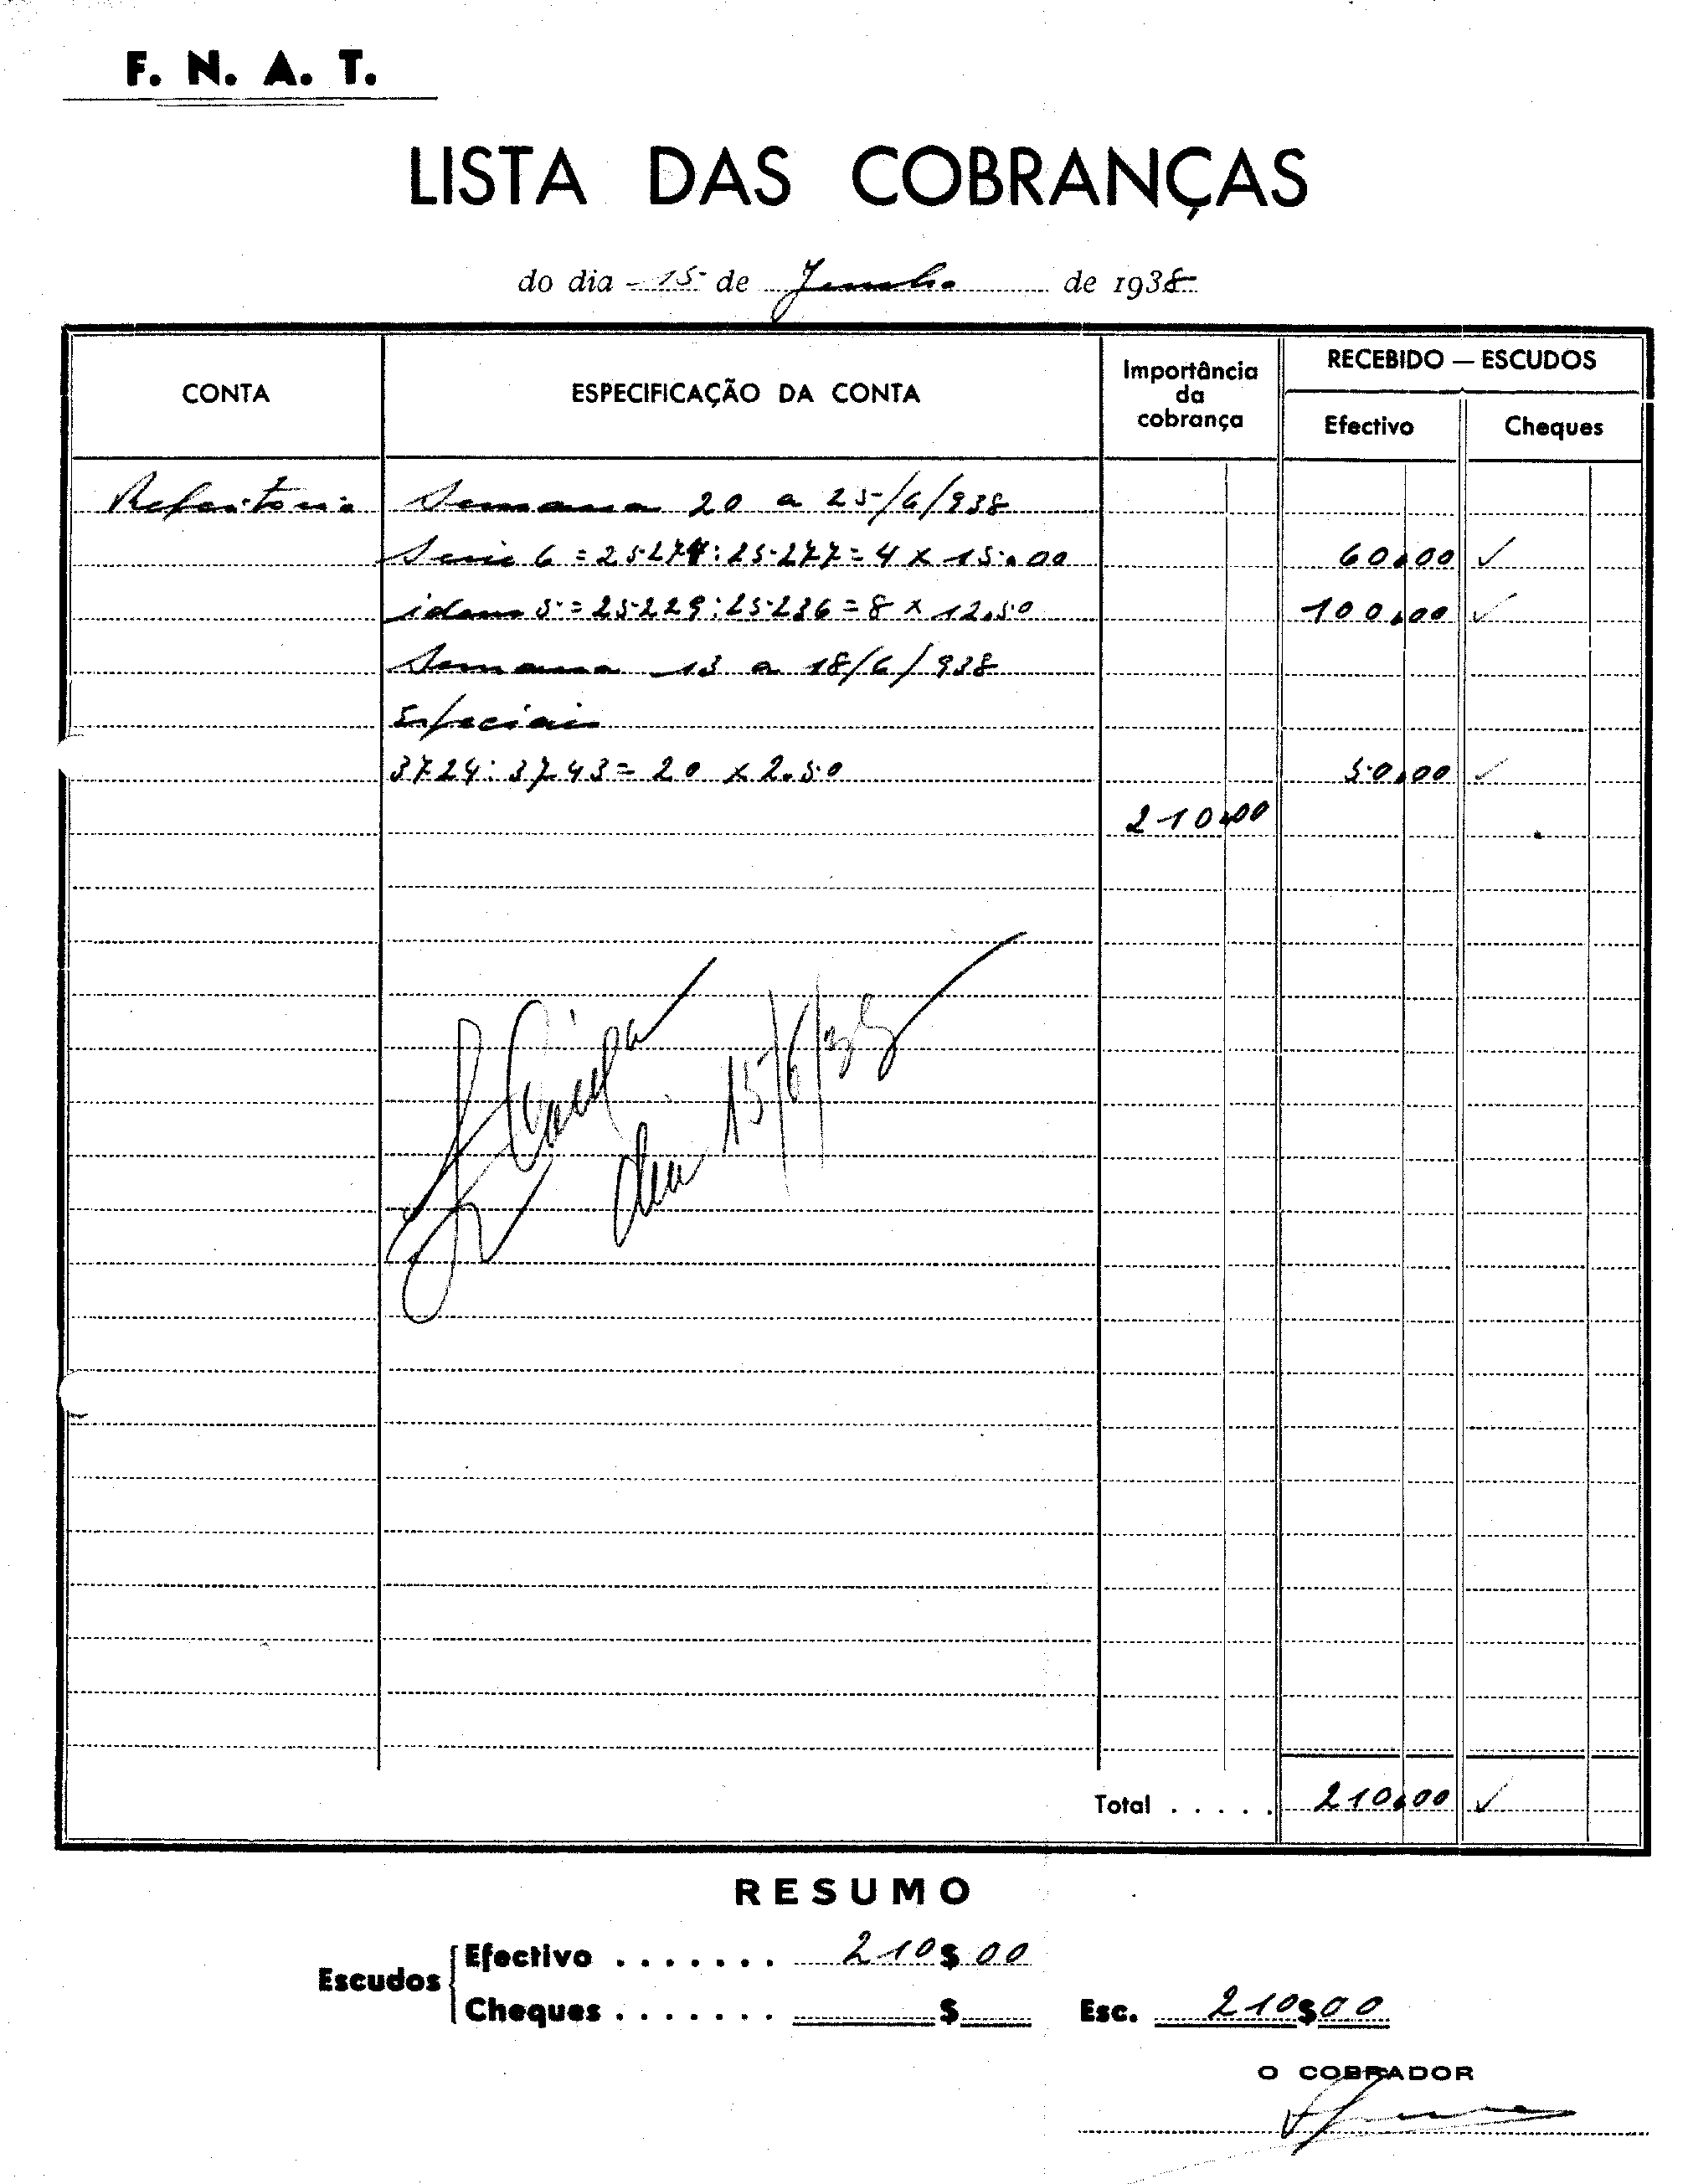 F. N. A. T.
LISTA DAS COBRANÇAS
do dia 15 de Junho de 1938
CONTA
ESPECIFICAÇÃO DA CONTA
Importância
da
cobrança
RECEBIDO — ESCUDOS
Efectivo
Cheques
Refeitorio Semana 20 a 25/6/938
Serie 6 = 25.274 : 25.277 = 4 x 15.00 60.00 ✓
idem 5 = 25.229 : 25.236 = 8 x 12.50 100.00 ✓
Semana 13 a 18/6/938
Especiais
3724 : 3743 = 20 x 2.50 50.00 ✓
210.00
15/6/38
Total . . . . . 210.00 ✓
RESUMO
Escudos
Efectivo . . . . . . . 210$00
Cheques . . . . . . . $
Esc. 210$00
O COBRADOR